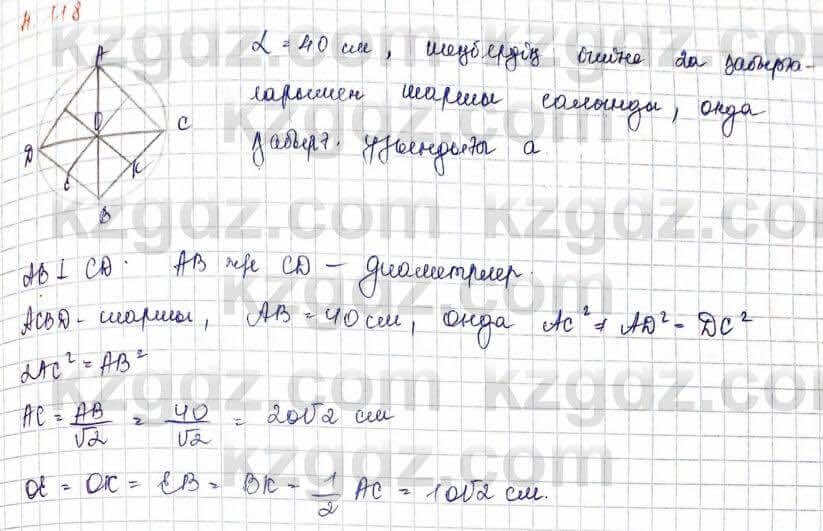 А. 118
А
D
С
О
E
K
B
d = 40 см, шеңбердің ішіне да қабырға-
ларымен шаршы салынды, онда
қабырғ. ұзындығы а
AB ⊥ CD. AB және CD – диаметрлер.
ACBD – шаршы, AB = 40 см, онда AC² + AD² = DC²
2AC² = AB²
AC = AB/√2 = 40/√2 = 20√2 см
OE = OK = EB = BK = 1/2 AC = 10√2 см.
kzgdz.com